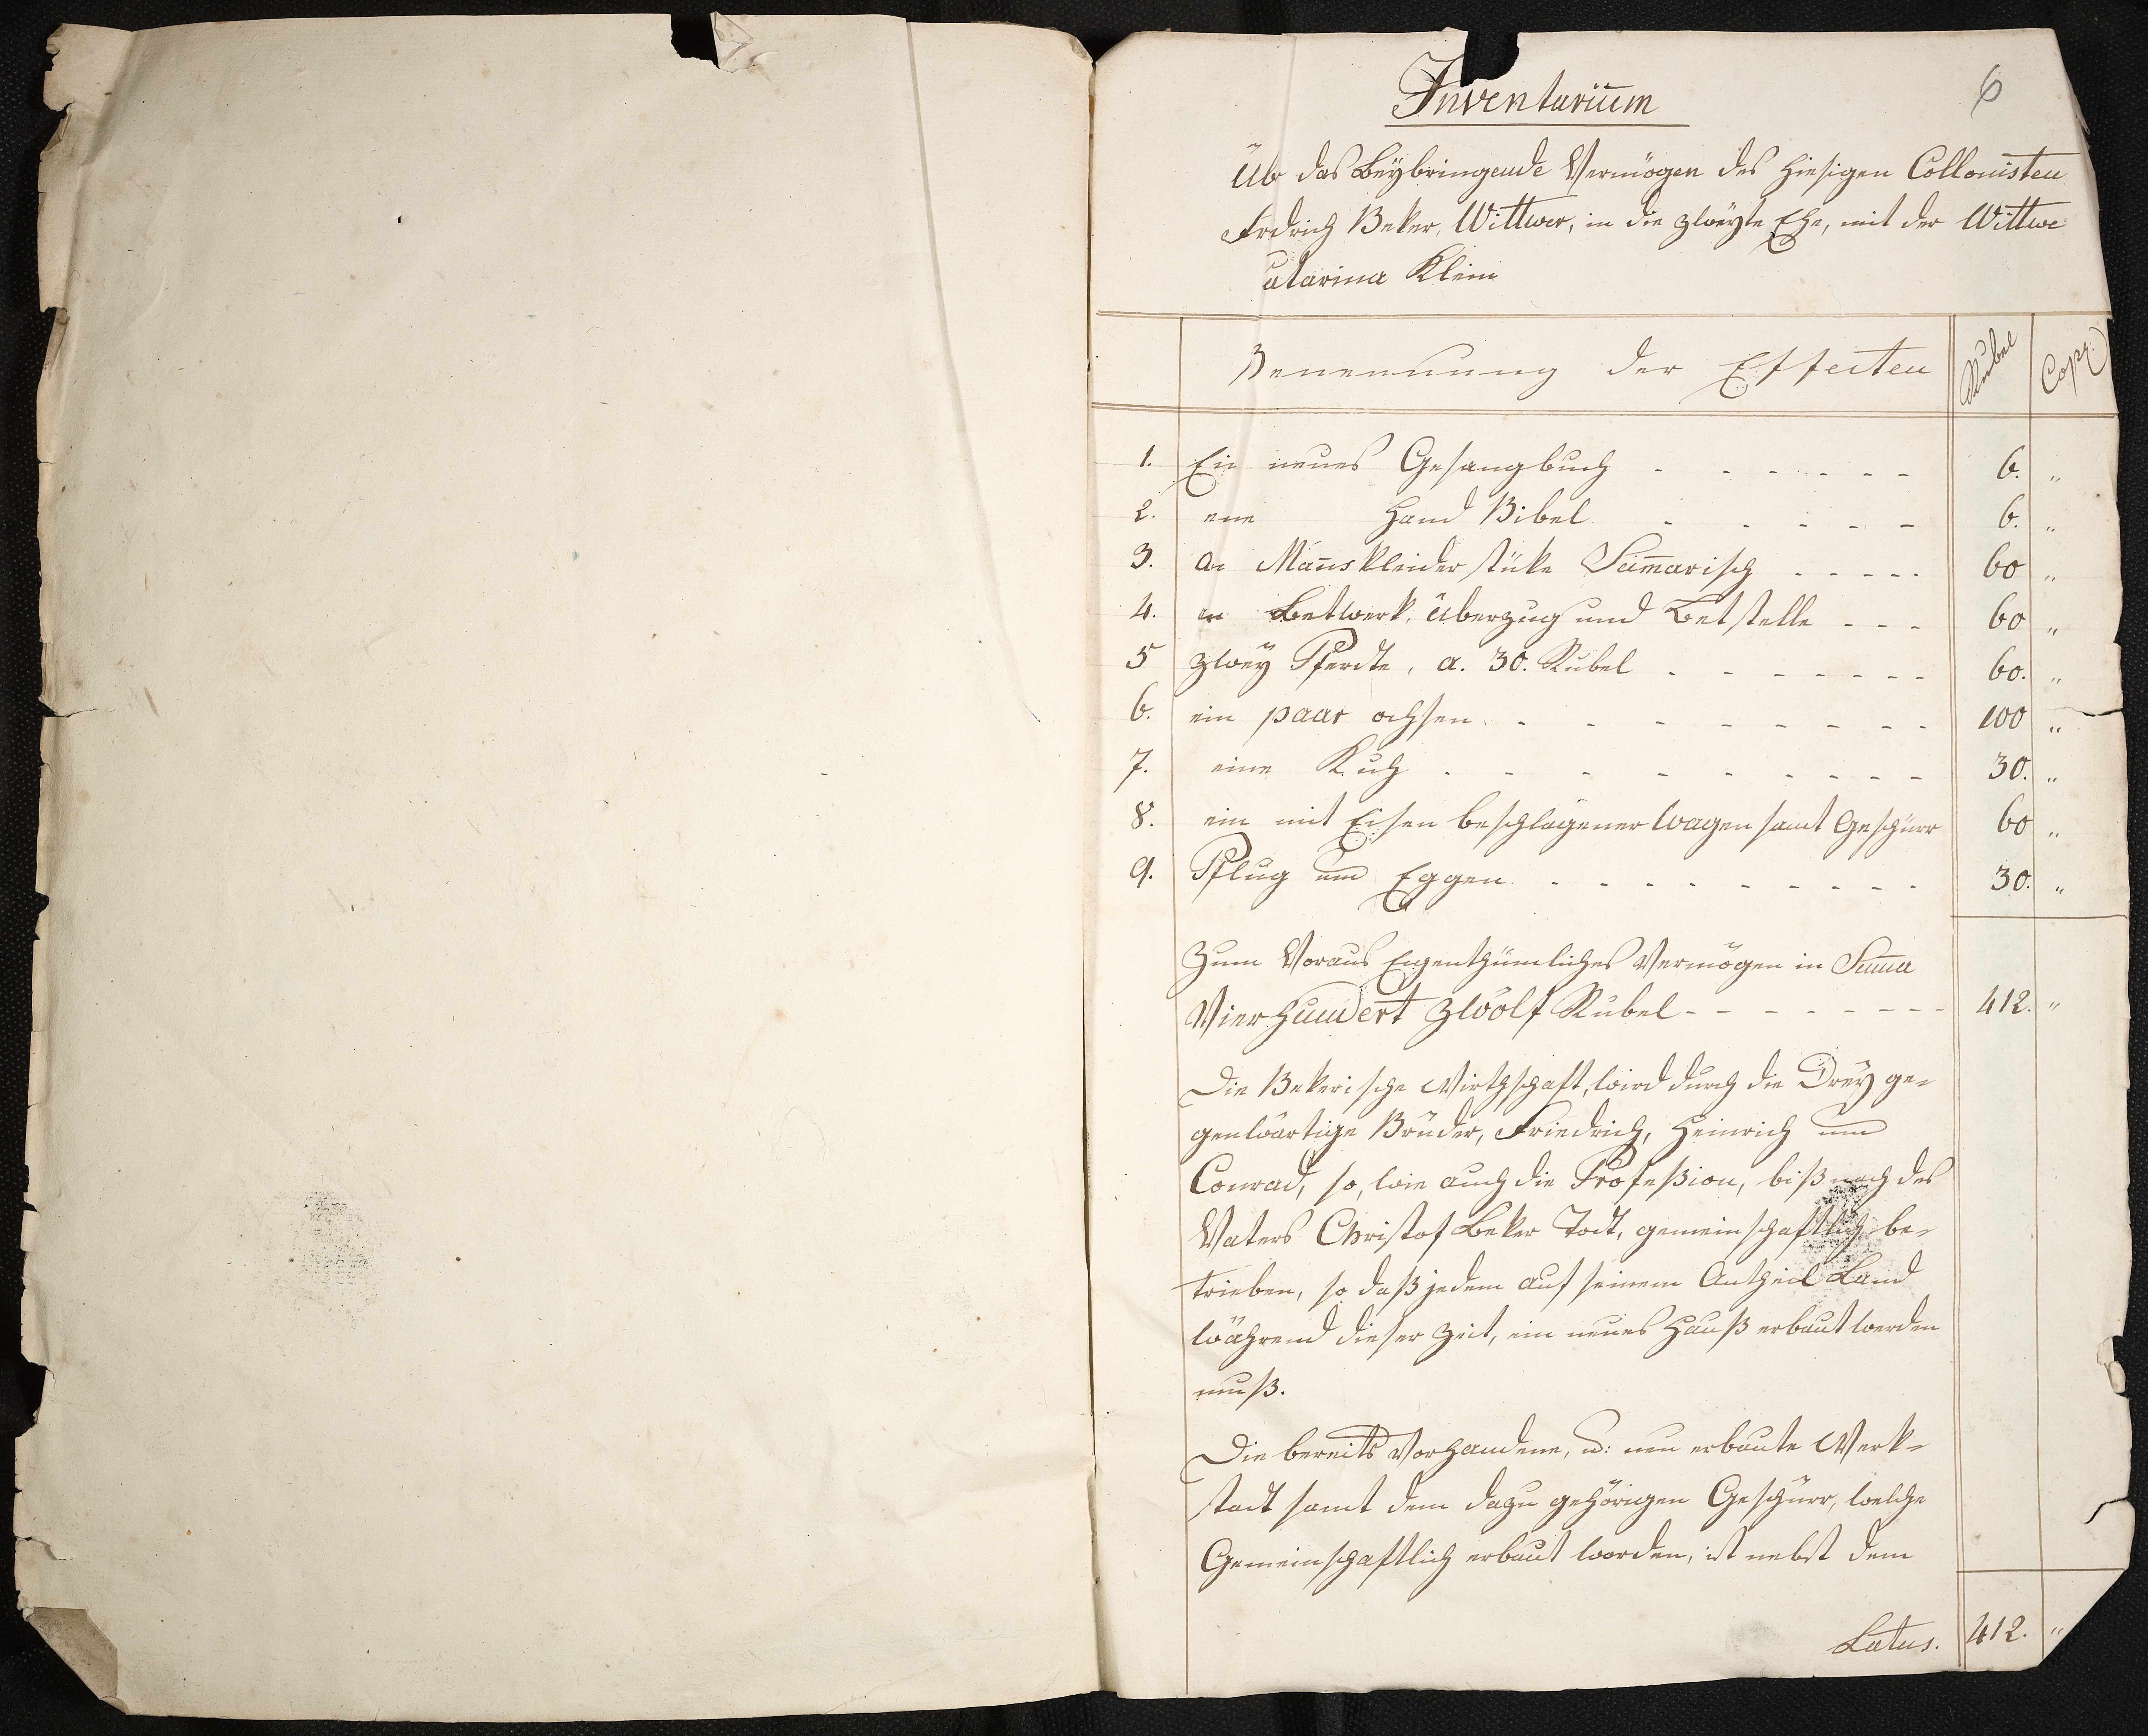 Inventariūm
6
Üb das Beÿbringende Vermögen des hiesigen Collonisten
Frdrich Beker, Wittwer, in die zweÿte Ehe, mit der Wittwe
Catarina Klein
Benennung der Effecten Rubel Cop.
1. Ein neues Gesangbuch - - - - - - 6. "
2. eine Hand Bibel - - - - - 6. "
3. an Mañskleider stüke Sumarisch - - - - - 60 "
4. an Betwerk, überzug und Betstelle - - - 60 "
5 zweÿ Pferdte, a. 30. Rubel - - - - - - - 60. "
6. ein paar ochsen - - - - - - - - 100 "
7. eine Kuh - - - - - - - - 30. "
8. ein mit Eisen beschlagener Wagen samt Geschürr 60 "
9. Pflug und Eggen - - - - - - - - 30. "
Zum Voraus Eigenthümliches Vermögen in Suma
Vierhundert zwölf Rubel - - - - - - - - 412. "
Die Bekerische Wirthschaft, wird durch die Dreÿ ge-
genwärtige Brüder, Friedrich, Heinrich und
Conrad, so, wie auch die Profeßion, biß nach des
Vaters Christof Beker Todt, gemeinschaftlich be-
trieben, so daß jedem auf seinem Antheil Land
während dieser Zeit, ein neues Hauß erbaut werden
muß.
Die bereits Vorhandene, u: neu erbaute Werk-
stadt samt dem dazu gehörigen Geschürr, welche
Gemeinschaftlich erbaut worden, ist nebst dem
Latus. 412. "